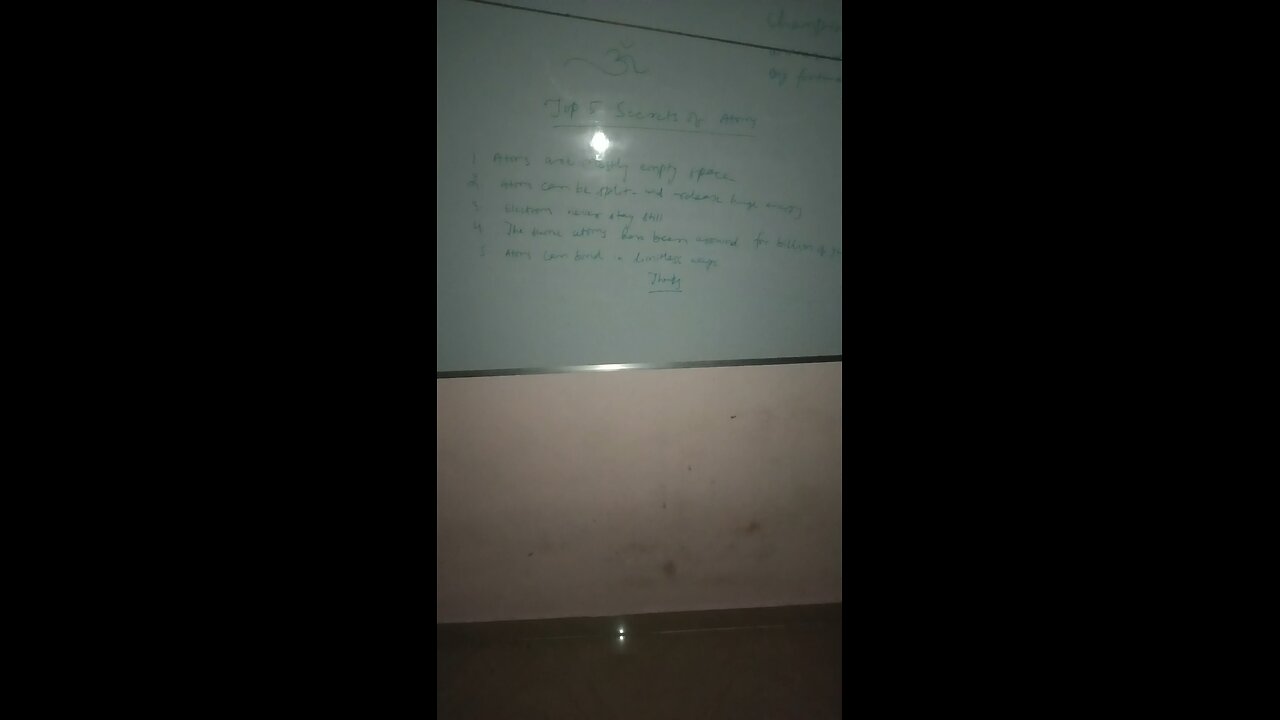 ॐ
Top 5 Secrets of Atoms
1. Atoms are mostly empty space
2. Atoms can be split and release huge energy
3. Electrons never stay still
4. The same atoms have been around for billions of
5. Atoms can bond in limitless ways
Thanks